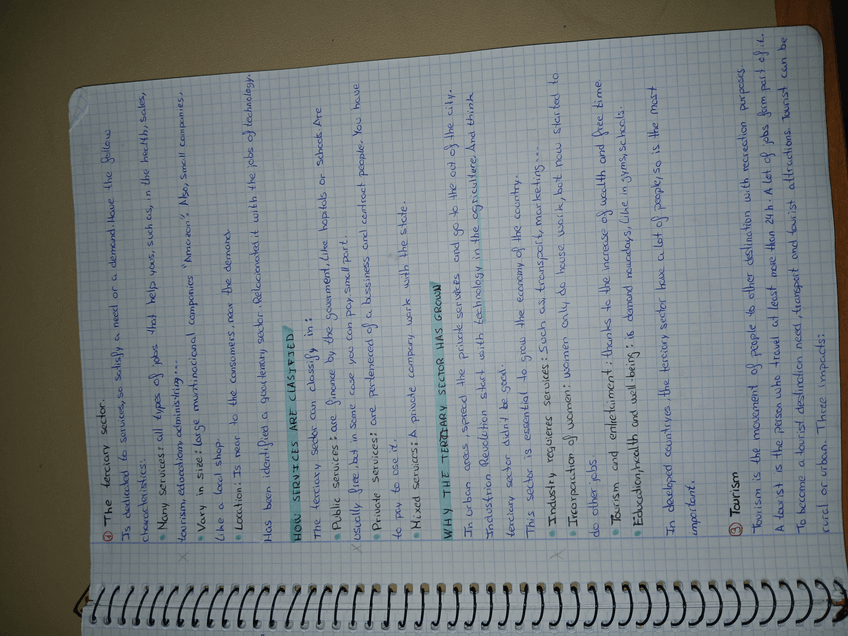 ① The terciary sector.
Is dedicated to services, so satisfy a need or a demand. Have the follow
characteristics:
• Many services: all types of jobs that help yous, such as, in the health, sales,
tourism, education, administring...
• Vary in size: large multinacional companies "Amazon". Also, small companies,
like a local shop.
• Location: Is near to the consumers, near the demand.
Has been identified a quaternary sector. Relacionated it with the jobs of technology.
HOW SERVICES ARE CLASIFIED/
The terciary sector can classify in:
• Public services: are finance by the goverment, like hopitals or schools. Are
usually free, but in some case you can pay small part.
• Private services: are of a bussiness and contract people. You have
to pay to use it.
• Mixed services: A private company work with the state.
WHY THE TERTIARY SECTOR HAS GROWN
In urban areas, spread the private services and go to the out of the city.
Industrian Revolution start with technology in the agriculture. And think
terciary sector didn't be good.
This sector is essential to grow the economy of the country.
• Industry requieres services: Such as, transport, marketing...
• Incorporaction of women: women only do house work, but now started to
do other jobs.
• Tourism and entertaiment: thanks to the increase of wealth and free time
• Education, health and well-being: is demand nowadays, like in gyms, schools.
In developed countives the terciary sector have a lot of people, so is the most
important.
② Tourism
Tourism is the movement of people to other destination with recreation purposes
A tourist is the person who travel at least more than 24h. A lot of jobs form part of it.
To become a tourist destination need, transport and tourist attractions. Tourist can be
rural or urban. Three impacts: